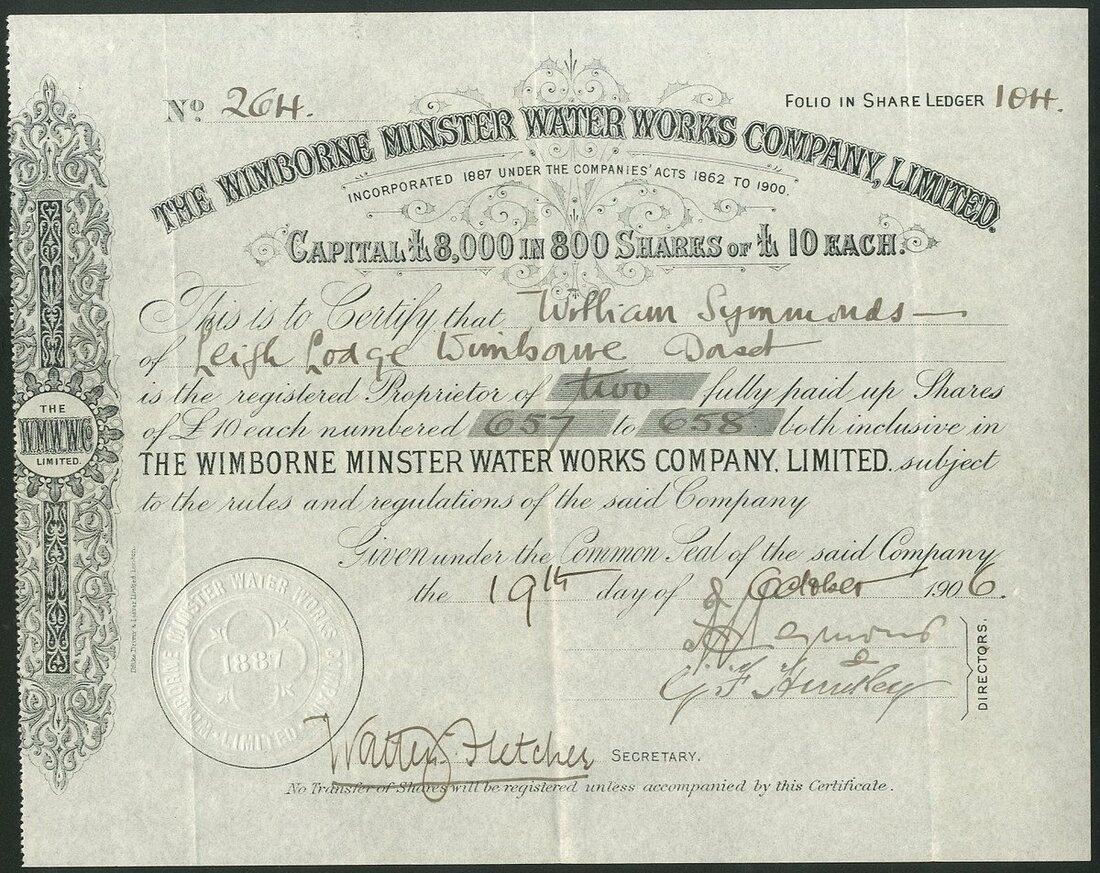 No 264.
FOLIO IN SHARE LEDGER 104.
THE WIMBORNE MINSTER WATER WORKS COMPANY, LIMITED.
INCORPORATED 1887 UNDER THE COMPANIES' ACTS 1862 TO 1900.
CAPITAL £8,000 IN 800 SHARES OF £10 EACH.
This is to Certify that William Symmonds
of Leigh Lodge Wimborne Dorset
is the registered Proprietor of two fully paid up Shares
of £10 each numbered 657 to 658 both inclusive in
THE WIMBORNE MINSTER WATER WORKS COMPANY, LIMITED. subject
to the rules and regulations of the said Company
Given under the Common Seal of the said Company
the 19th day of October 1906.
DIRECTORS.
Fletcher SECRETARY.
No Transfer of Shares will be registered unless accompanied by this Certificate.
THE
LIMITED.
WIMBORNE MINSTER WATER WORKS COMPANY LIMITED
1887